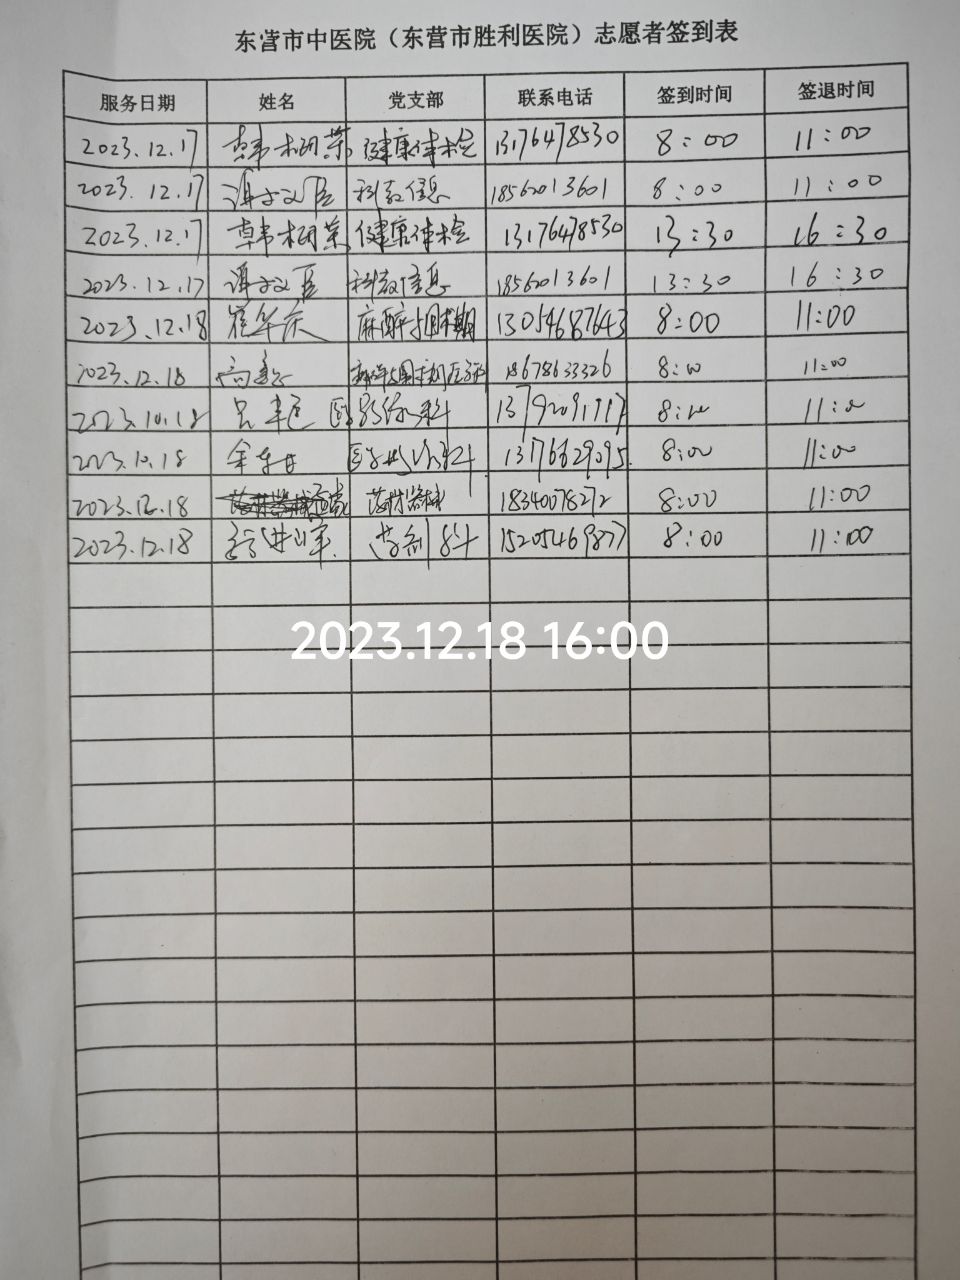 东营市中医院（东营市胜利医院）志愿者签到表
服务日期 姓名 党支部 联系电话 签到时间 签退时间
2023.12.17 韩 荣 健康体检 13176478530 8:00 11:00
2023.12.17 科教信息 18562013601 8:00 11:00
2023.12.17 韩 荣 健康体检 13176478530 13:30 16:30
2023.12.17 科教信息 18562013601 13:30 16:30
2023.12.18 崔华庆 麻醉与围术期 13054687643 8:00 11:00
2023.12.18 高 18678633326 8:00 11:00
2023.10.18 吕 科 8:00 11:00
2023.10.18 金 科 13176629095 8:00 11:00
2023.12.18 药材器械 18340078272 8:00 11:00
2023.12.18 药剂科 15205469877 8:00 11:00
2023.12.18 16:00